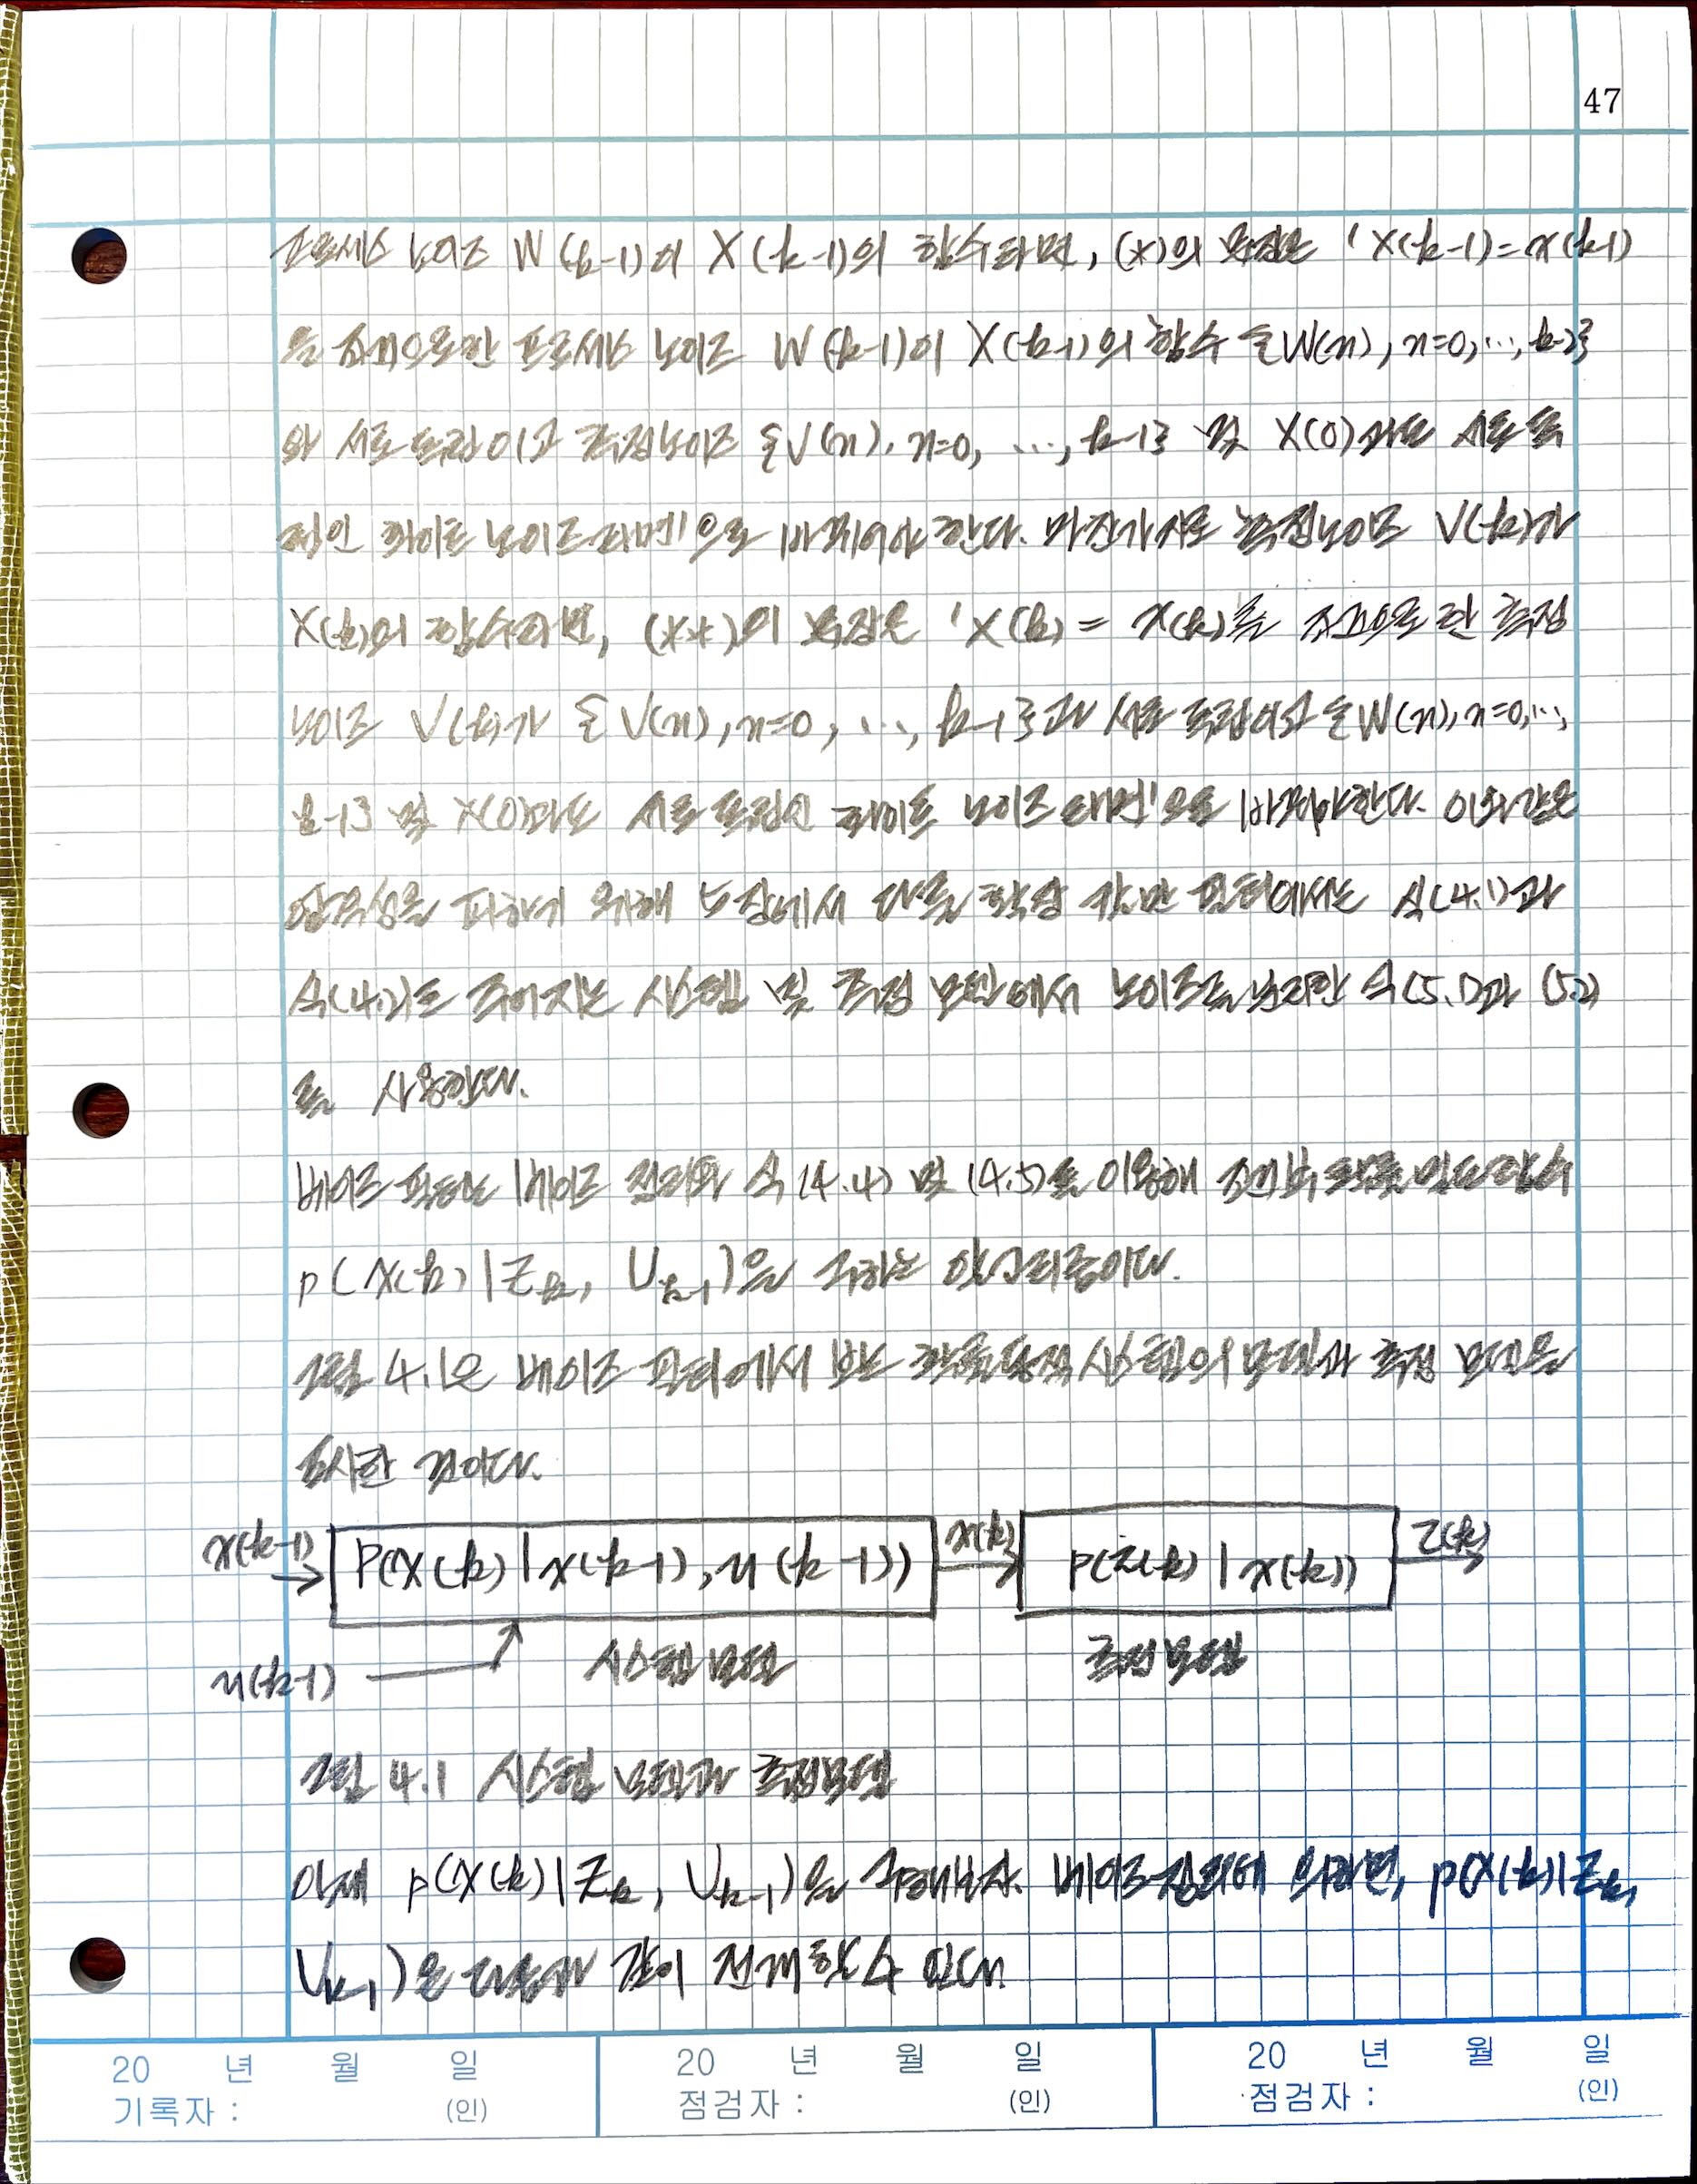 47
프로세스 노이즈 W(k-1)이 X(k-1)의 함수라면, (*)의 문장은 'X(k-1)=x(k-1)
을 조건으로한 프로세스 노이즈 W(k-1)이 X(k-1)의 함수 {W(n), n=0, ..., k-2}
와 서로 독립이고 측정노이즈 {V(n), n=0, ..., k-1} 및 X(0)과도 서로 독
립인 화이트 노이즈라면'으로 바뀌어야 한다. 마찬가지로 측정노이즈 V(k)가
X(k)의 함수라면, (**)의 문장은 'X(k) = x(k)를 조건으로 한 측정
노이즈 V(k)가 {V(n), n=0, ..., k-1}과 서로 독립이고 {W(n), n=0, ...,
k-1} 및 X(0)과도 서로 독립인 화이트 노이즈 라면'으로 바꿔야한다. 이와같은
을 피하기 위해 5장에서 다룰 확장 칼만 필터에서는 식(4.1)과
식(4.2)로 주어지는 시스템 및 측정 모델에서 노이즈를 분리한 식(5.1)과 (5.2)
를 사용한다.
베이즈 필터는 베이즈 정리와 식 (4.4) 및 (4.5)를 이용해 조건부 확률 밀도함수
p(x(k)|Z_k, U_k-1)을 구하는 알고리즘이다.
그림 4.1은 베이즈 필터에서 보는 확률동적 시스템의 모델과 측정 모델을
도시한 것이다.
x(k-1) P(x(k)|x(k-1), u(k-1)) x(k) p(z(k)|x(k)) z(k)
u(k-1) 시스템 모델 측정 모델
그림 4.1 시스템 모델과 측정모델
이제 p(x(k)|Z_k, U_k-1)을 구해보자. 베이즈 정리에 의하면, p(x(k)|Z_k,
U_k-1)은 다음과 같이 전개할 수 있다.
20 년 월 일 20 년 월 일 20 년 월 일
기록자 : (인) 점검자 : (인) 점검자 : (인)